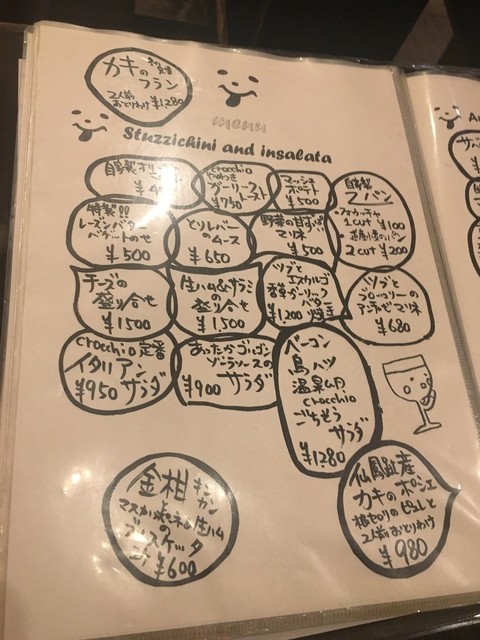 カキの
フラン
2人前
おとりわけ ¥1280
menu
Stuzzichini and insalata
自家製
crocchio
やみつき
ガーリック
トースト
¥750
マッシュ
ポテト
¥500
自家製
パン
・フォカッチャ
1cut ¥100
2cut ¥200
特製!!
レーズンバター
バゲットのせ
¥500
とりレバー
のムース
¥650
野菜の甘ずっぱ
マリネ
¥500
チーズの
盛り合せ
¥1500
生ハム&サラミ
の
盛り合せ
¥1,500
ツブと
エスカルゴ
香草ガーリック
バター
¥1200 焼き
ツブと
ブロッコリーの
アンチョビマリネ
¥680
crocchio定番
イタリアン
¥950 サラダ
あったかゴルゴン
ゾーラソースの
¥900 サラダ
ベーコン
鳥ハツ
温泉卵
crocchio
ごちそう
サラダ
¥1280
金柑 キンカン
マスカルポーネ&生ハム
の
ブルスケッタ
¥600
仙鳳趾産
カキのポシェ
根セロリのピュレと
2人前おとりわけ
¥980